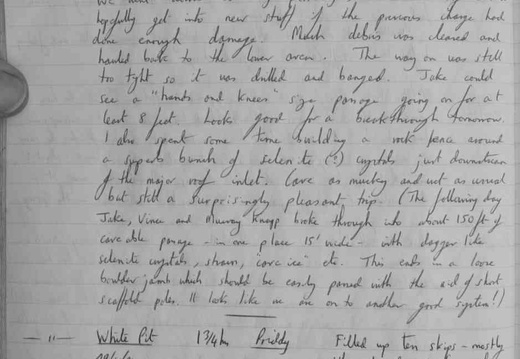 hopefully get into new stuff if the previous charge had
done enough damage. Much debris was cleared and
hauled back to the lower aven. The way on was still
too tight so it was drilled and banged. Jake could
see a "hands and knees" size passage going on for at
least 8 feet. Looks good for a breakthrough tomorrow.
I also spent some time building a rock fence around
a superb bunch of selenite (?) crystals just downstream
of the major roof inlet. Cave as mucky and wet as usual
but still a surprisingly pleasant trip. (The following day
Jake, Vince and Murray Knapp broke through into about 150 ft of
caveable passage - in one place 15' wide - with dagger like
selenite crystals, straws, "cave ice" etc. This ends in a loose
boulder jamb which should be easily passed with the aid of short
scaffold poles. It looks like we are on to another good system!)
— 11 — White Pit 1¾ hr Priddy Filled up ten skips - mostly